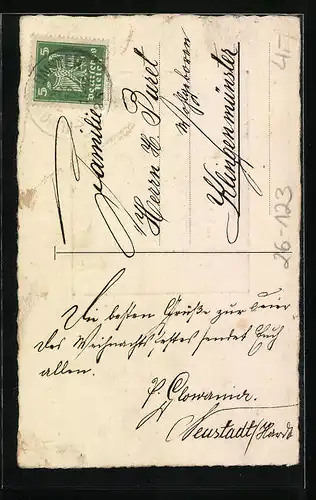 5
5
Deutsches
Reich
Familie
Herrn H. Buret
Wohlgeboren
Klingenmünster
4,-
26-123
Die besten Grüße zur Feier
des Weihnachtsfestes sendet Euch
allen.
Neustadt/Hardt